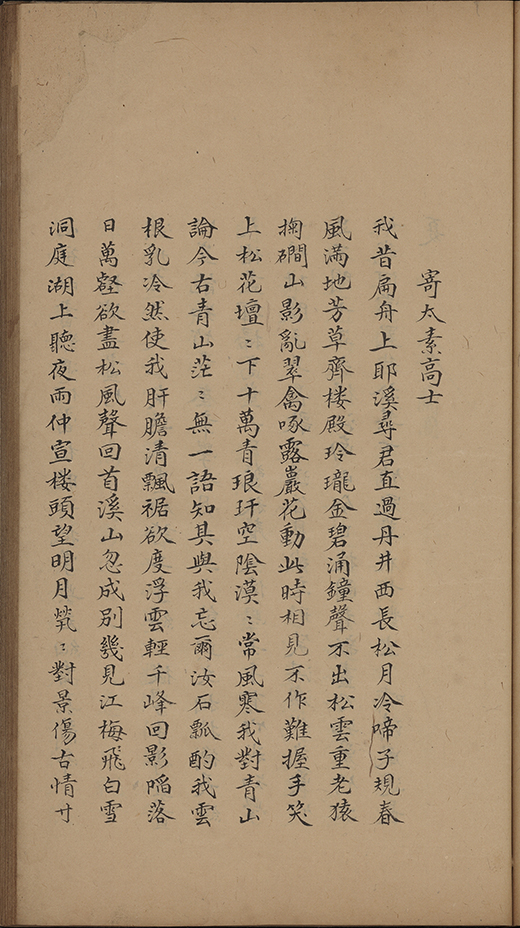 寄太素高士
我昔扁舟上耶溪尋君直過丹井西長松月冷啼子規春
風滿地芳草齊楼殿玲瓏金碧涌鐘聲不出松雲重老猿
掬磵山影亂翠禽啄露巖花動此時相見不作難握手笑
上松花壇〻下十萬青琅玕空陰漠〻常風寒我對青山
論今古青山茫〻無一語知其與我忘爾汝石瓢酌我雲
根乳冷然使我肝膽清飄裾欲度浮雲輕千峰回影陷落
日萬壑欲盡松風聲回首溪山忽成別幾見江梅飛白雪
洞庭湖上聽夜雨仲宣楼頭望明月煢〻對景傷古情廿